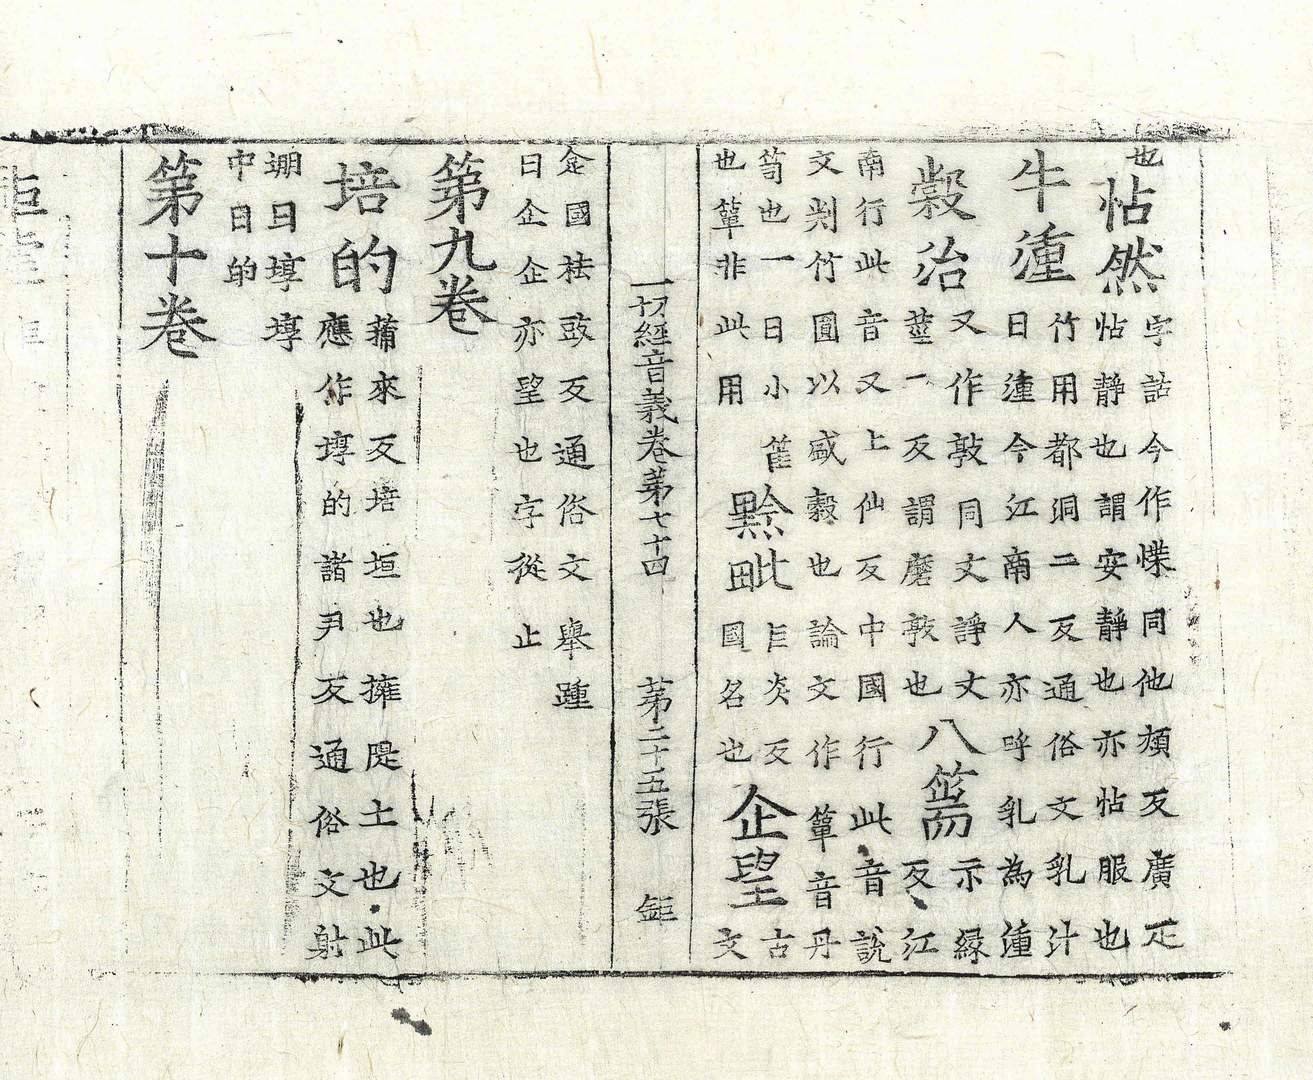 也帖然字詁今作惵同他頰反廣疋
帖静也謂安靜也亦帖服也
牛湩竹用都洞二反通俗文乳汁
曰湩今江南人亦呼乳為湩
糓治又作敦同丈諍丈
莖一反謂磨敦也八篅示緣
反江
南行此音又上仙反中國行此音說
文判竹圓以盛糓也論文作簞音丹
笥也一曰小筐
也簞非此用黔毗巨炎反
國名也企望古
文
一切經音義卷第七十四 第二十五張 鉅
企國袪豉反通俗文舉踵
曰企企亦望也字從止
第九卷
培的蒲來反培垣也擁㞐土也此
應作埻的諸尹反通俗文射
堋曰埻埻
中曰的
第十卷